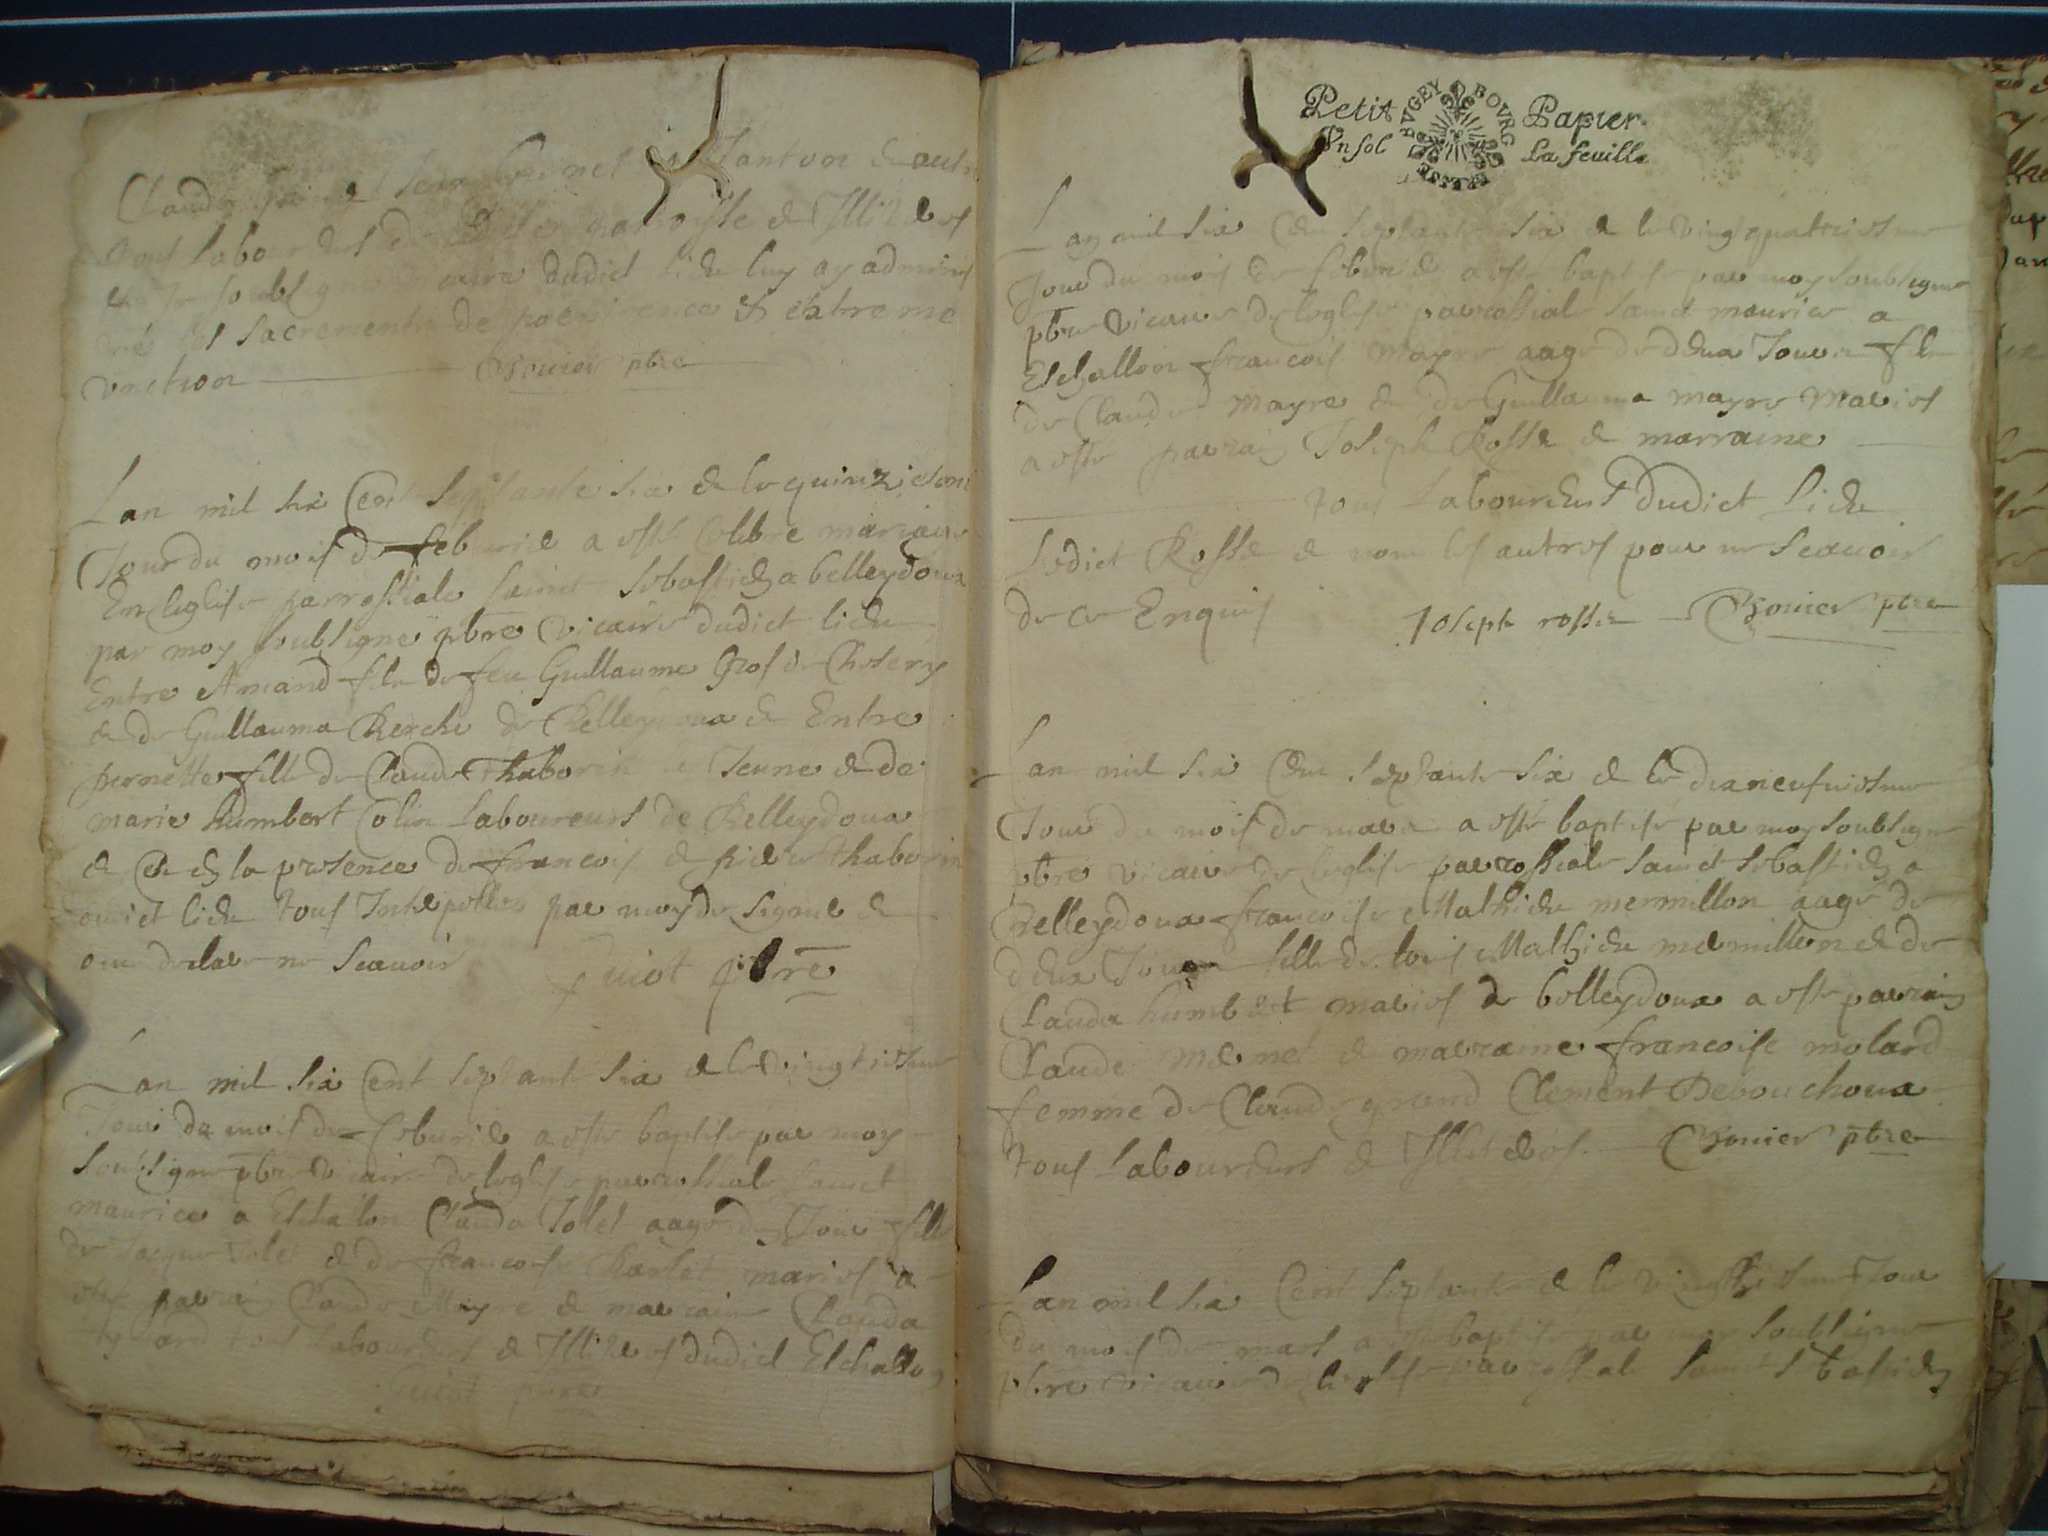 Claude
tous laboureurs de parroisse & Illiteres
& Je soubsigné vicaire dudict lieu luy ay adminis
tré les sacrements de poenitence & extreme
unction ptre
Lan mil six Cent septante six & le quinziesme
Jour du mois de febvrier a esté Celebré mariage
En leglise parrossiale sainct sebastien a belleydoux
par moy soubsigné pbre vicaire dudict lieu
Entre Amand fils de feu Guillaume Gros de Chesery
& de Guillauma Kerche de Belleydoux & Entre
pernette fille de Claude Thaborin le Jeune & de
marie humbert Colin Laboureurs de Belleydoux
& Ce en la presence de francois & Thaborin
dudict lieu tous Interpellés par moy de signer &
ont declaré ne scavoir pbre
Lan mil six Cent septante six & le vingtiesme
Jour du mois de febvrier a esté baptisé par moy
soubsigné pbre vicaire de leglise parrossiale sainct
maurice a Eschalon Clauda Jolet aagé dun Jour fille
de Jacque Jolet & de francoise mariés a
esté parrain Claude Mayre & marraine Clauda
tous laboureurs & Illiteres dudict Eschallon
pbre
Petit BUGEY BOURG Papier
Un sol La feuille
Lan mil six Cent septante six & le vingt quatriesme
Jour du mois de febvrier a esté baptisé par moy soubsigné
pbre vicaire de leglise parrossiale sainct maurice a
Eschallon francois Mayre aagé de deux Jours fils
de Claude Mayre & de Guillauma mayre Mariés
a esté parrain Joseph Rosse & marraine
tous Laboureurs dudict Lieu
Ledict Rosse & non les autres pour ne scavoir
de ce Enquis Joseph rosse ptre
Lan mil six Cent septante six & le dixneufviesme
Jour du mois de mars a esté baptisé par moy soubsigné
pbre vicaire de leglise parrossiale sainct sebastien a
Belleydoux francoise Mathieu mermillon aagé de
deux Jours fille de lois Mathieu mermillon & de
Clauda humbert mariés de belleydoux a esté parrain
Claude mermet & marraine francoise molard
femme de Claude grand Clement Debouchoux
tous Laboureurs & Illiteres. ptre
Lan mil six Cent septante & le vingtiesme Jour
du mois de mars a esté baptisé par moy soubsigné
pbre vicaire de leglise parrossiale sainct sebastien